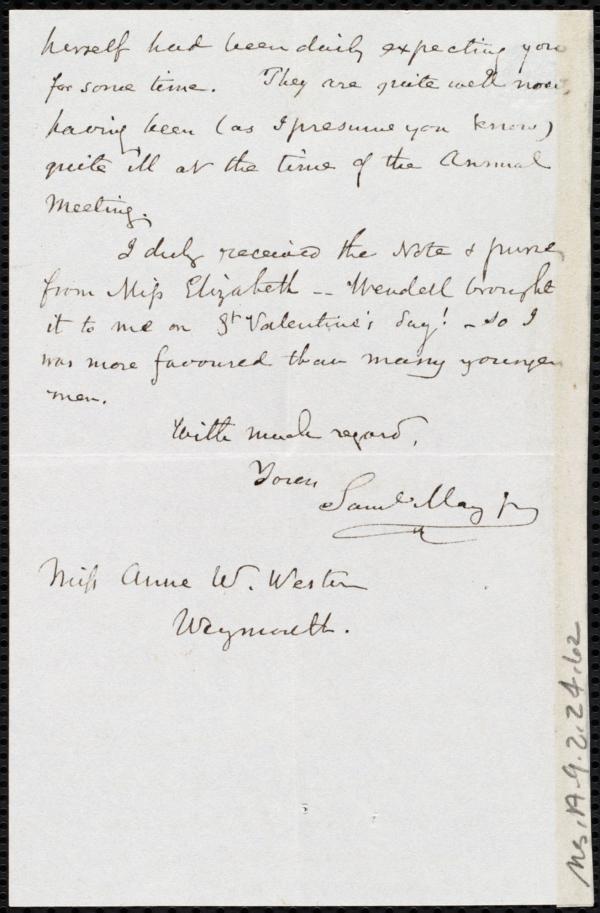 herself had been daily expecting you
for some time. They are quite well now,
having been (as I presume you know)
quite ill at the time of the Annual
Meeting.
I duly received the Note & purse
from Miss Elizabeth -- Wendell brought
it to me on St Valentine's day! - so I
was more favoured than many younger
men.
With much regard,
Yours
Saml May Jr
Miss Anne W. Weston
Weymouth.
Ms. A. 9. 2. 24. 62